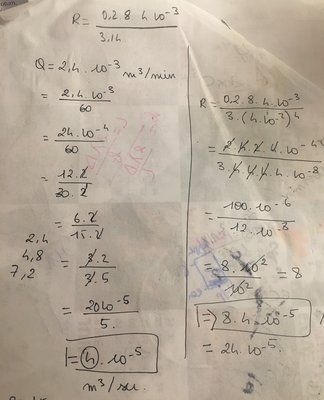 R = 0,2.8.4.10⁻³ / 3,14
Q = 2,4.10⁻³ m³/min
= 2,4.10⁻³ / 60
= 24.10⁻⁴ / 60
= 12.2 / 30.2
= 6.2 / 15.2
2,4
4,8
7,2
= 3.2 / 3.5
= 20 10⁻⁵ / 5.
|= 4.10⁻⁵
m³/sec.
R = 0,2.8.4.10⁻³ / 3.(4.10⁻²)⁴
= 100.10⁻⁶ / 12.10⁻⁸
= 8.10² / 10² = 8
|=> 8.4.10⁻⁵
= 24.10⁻⁵.